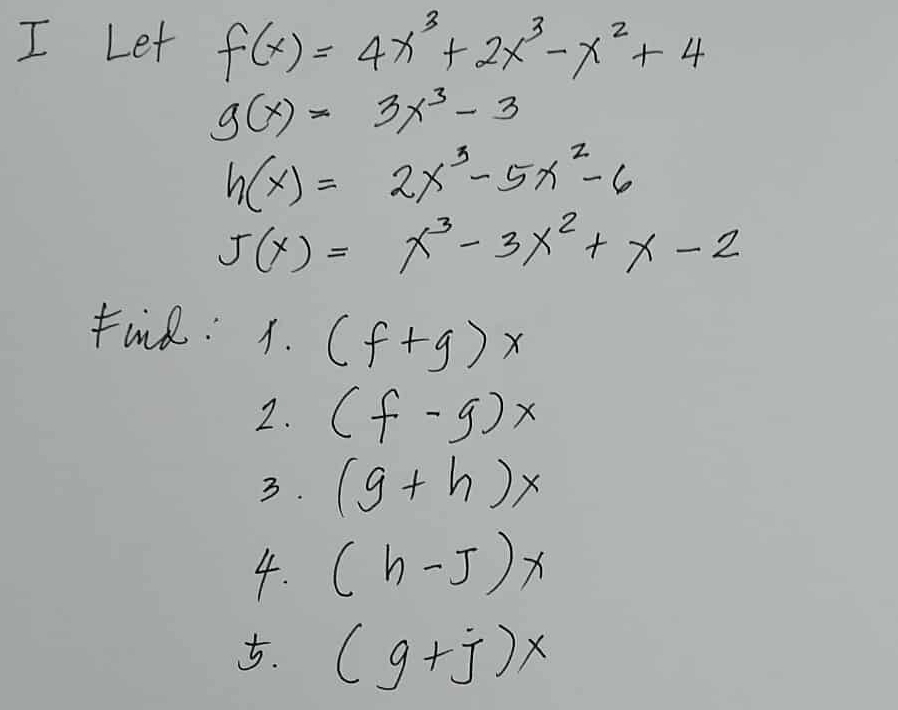 I Let f(x) = 4x³ + 2x³ - x² + 4
g(x) = 3x³ - 3
h(x) = 2x³ - 5x² - 6
J(x) = x³ - 3x² + x - 2
Find: 1. (f+g)x
2. (f-g)x
3. (g+h)x
4. (h-J)x
5. (g+j)x